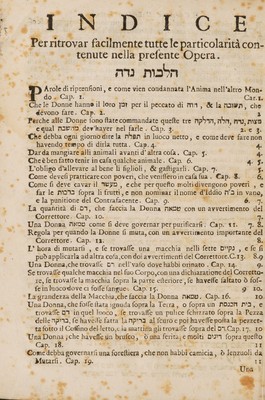 INDICE
Per ritrovar facilmente tutte le particolarità con-
tenute nella presente Opera.
הלכות נדה
PArole di riprensioni, e come vien condannata l'Anima nell'altro Mon-
do. Cap. 1. Car. 1.
Che le Donne hanno il loro זמן per il peccato di חוה, & la תשובה che
devono fare. Cap. 2. 1.
Perche alle Donne sono state commandate queste tre מצות, נדה, חלה, הדלקה
e qual משובה dev'haver nel farle. Cap. 3. 2
Che debba ogni giorno dire la תפלה in luoco netto, e come deve fare non
havendo tempo di dirla tutta. Cap. 4. 4.
Dar da mangiare alli animali avanti d'altra cosa. Cap. 5. 4.
Che è ben fatto tenir in casa qualche animale. Cap. 6. 4.
L'obligo d'allevare al bene li figliuoli, & gastigarli. Cap. 7. 5.
Come devesi praticare con poveri, che venissero in casa sua. Cap. 8. 6
Come si deve cavar il מעשר, e che per questo molti divengono poveri,
far le ברכות sopra li frutti, e non nominar il nome d'Iddio ב"ה in vano,
e la punition del Contrafacente. Cap. 9. 6.
La quantità di דם, che faccia la Donna טמאה con un avvertimento del
Correttore. Cap. 10. 7.
Una Donna טמאה come si deve governar per purificarsi. Cap. 11. 7. 8.
Regola per quando la Donna si muta, con un avvertimento importante del
Correttore. Cap. 12. 8.
L'hora di mutarsi, e se trovasse una macchia nelli sette נקיים, e se si
può applicarla ad altra cosa, con doi avvertimenti del Correttore. C. 13. 8. 9
Una Donna, che trovasse דם nell vaso dove habbi orinato. Cap. 14. 9.
Se trovasse qualche macchia nel suo Corpo, con una dichiaratione del Corretto-
re, se trovasse la macchia sopra la parte esteriore, se havesse saltato ò fos-
se in luoco dove vi fosse דם. Cap. 15. 9
La grandezza della Macchia, che faccia la Donna טמאה. Cap. 16. 10.
Una Donna, che fosse stata ignuda sopra la Terra, ò sopra un בית הכסא, e
trovasse דם in quel luoco, se trovasse un pulice schizzato sopra la Pezza
della בדיקה, se havesse fatta la בדיקה al scuro e poi havesse posta la pezzet-
ta sotto il Cossino del letto, e la mattina gli trovasse sopra del דם Cap. 17. 10.
Una Donna, che havesse un brusco, ò una ferita; e molti דינים sopra questo
Cap. 18. 11
Come debba governarsi una forestiera, che non habbi camicia, ò lenzuoli da
Mutarsi. Cap. 19. 11
Una